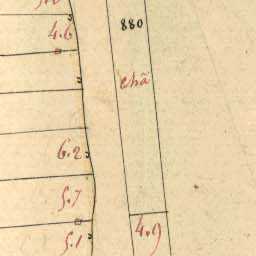 880
4.6
chã
6.2
5.7
4.9
5.1